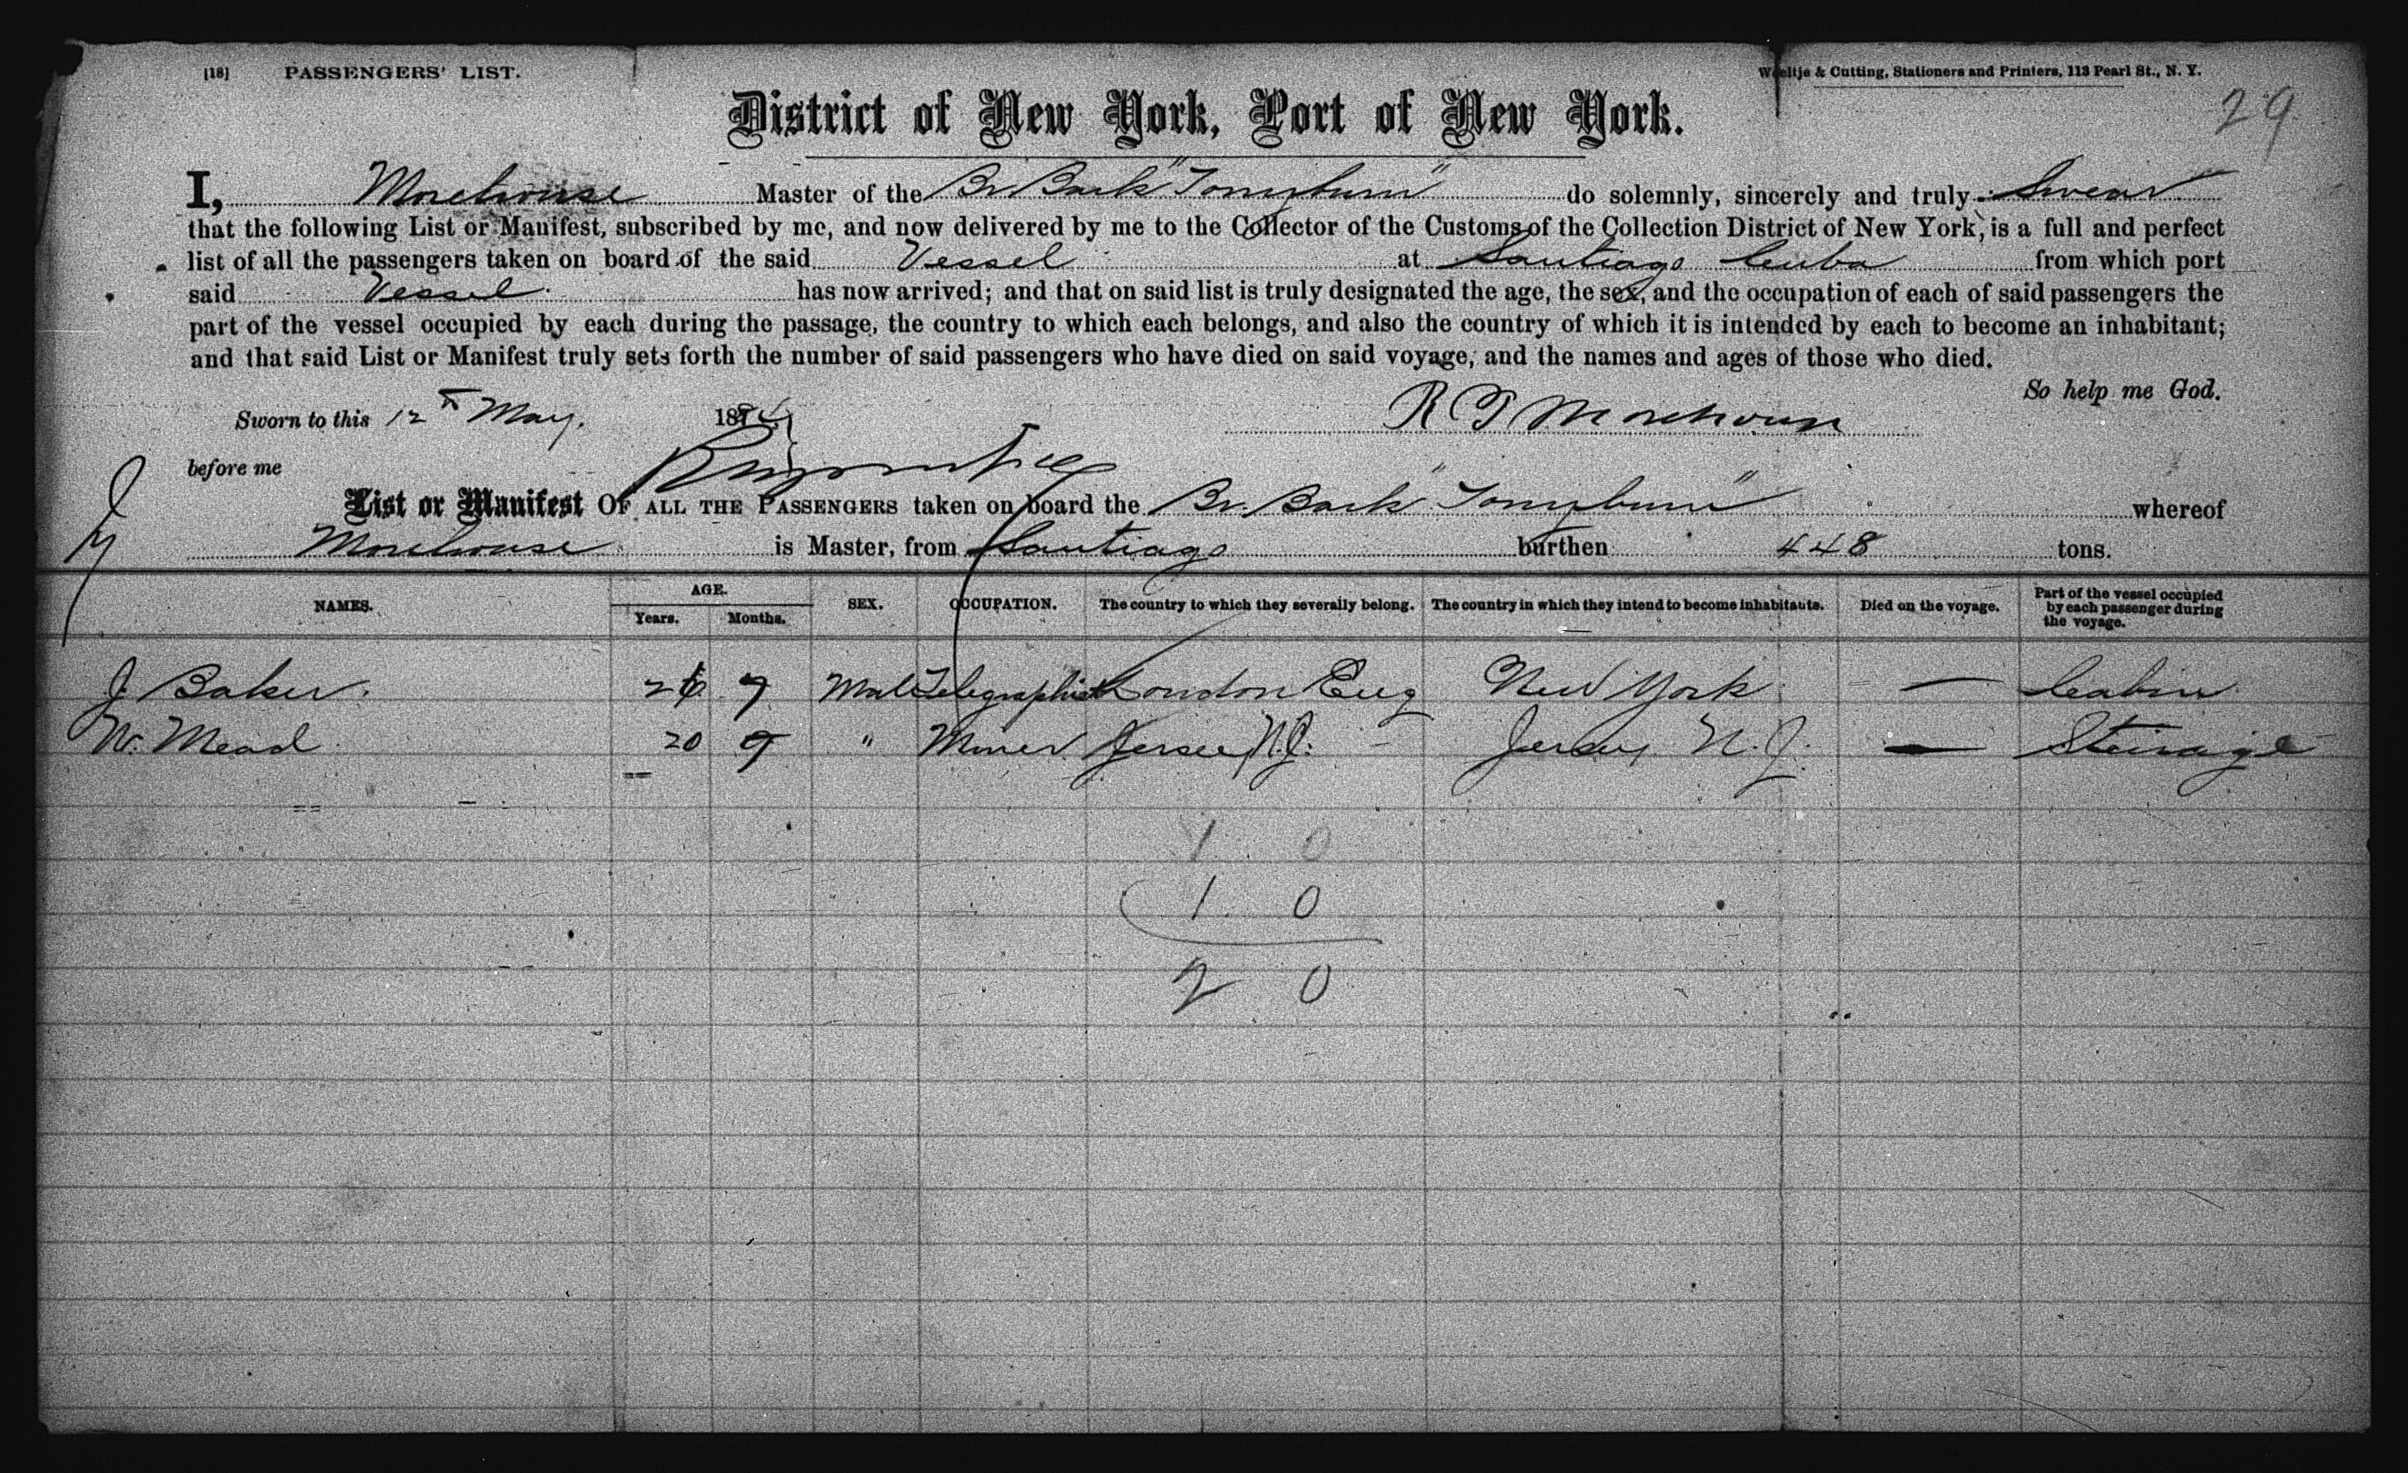 [18] PASSENGERS' LIST.
Woeltje & Cutting, Stationers and Printers, 113 Pearl St., N. Y.
29
District of New York, Port of New York.
I, Morehouse Master of the Br. Bark do solemnly, sincerely and truly Swear
that the following List or Manifest, subscribed by me, and now delivered by me to the Collector of the Customs of the Collection District of New York, is a full and perfect
list of all the passengers taken on board of the said Vessel at Santiago Cuba from which port
said Vessel has now arrived; and that on said list is truly designated the age, the sex, and the occupation of each of said passengers the
part of the vessel occupied by each during the passage, the country to which each belongs, and also the country of which it is intended by each to become an inhabitant;
and that said List or Manifest truly sets forth the number of said passengers who have died on said voyage, and the names and ages of those who died.
So help me God.
Sworn to this 12th May. 18
Morehouse
before me
List or Manifest OF ALL THE PASSENGERS taken on board the Br. Bark whereof
Morehouse is Master, from Santiago burthen 448 tons.
NAMES. AGE. Years. Months. SEX. OCCUPATION. The country to which they severally belong. The country in which they intend to become inhabitants. Died on the voyage. Part of the vessel occupied by each passenger during the voyage.
J. Baker. 26 9 Male Telegraphist London Eng New York — Cabin
W. Mead 20 9 " Miner Jersey N.J. Jersey N.J. — Steirage
1 0
1 0
2 0